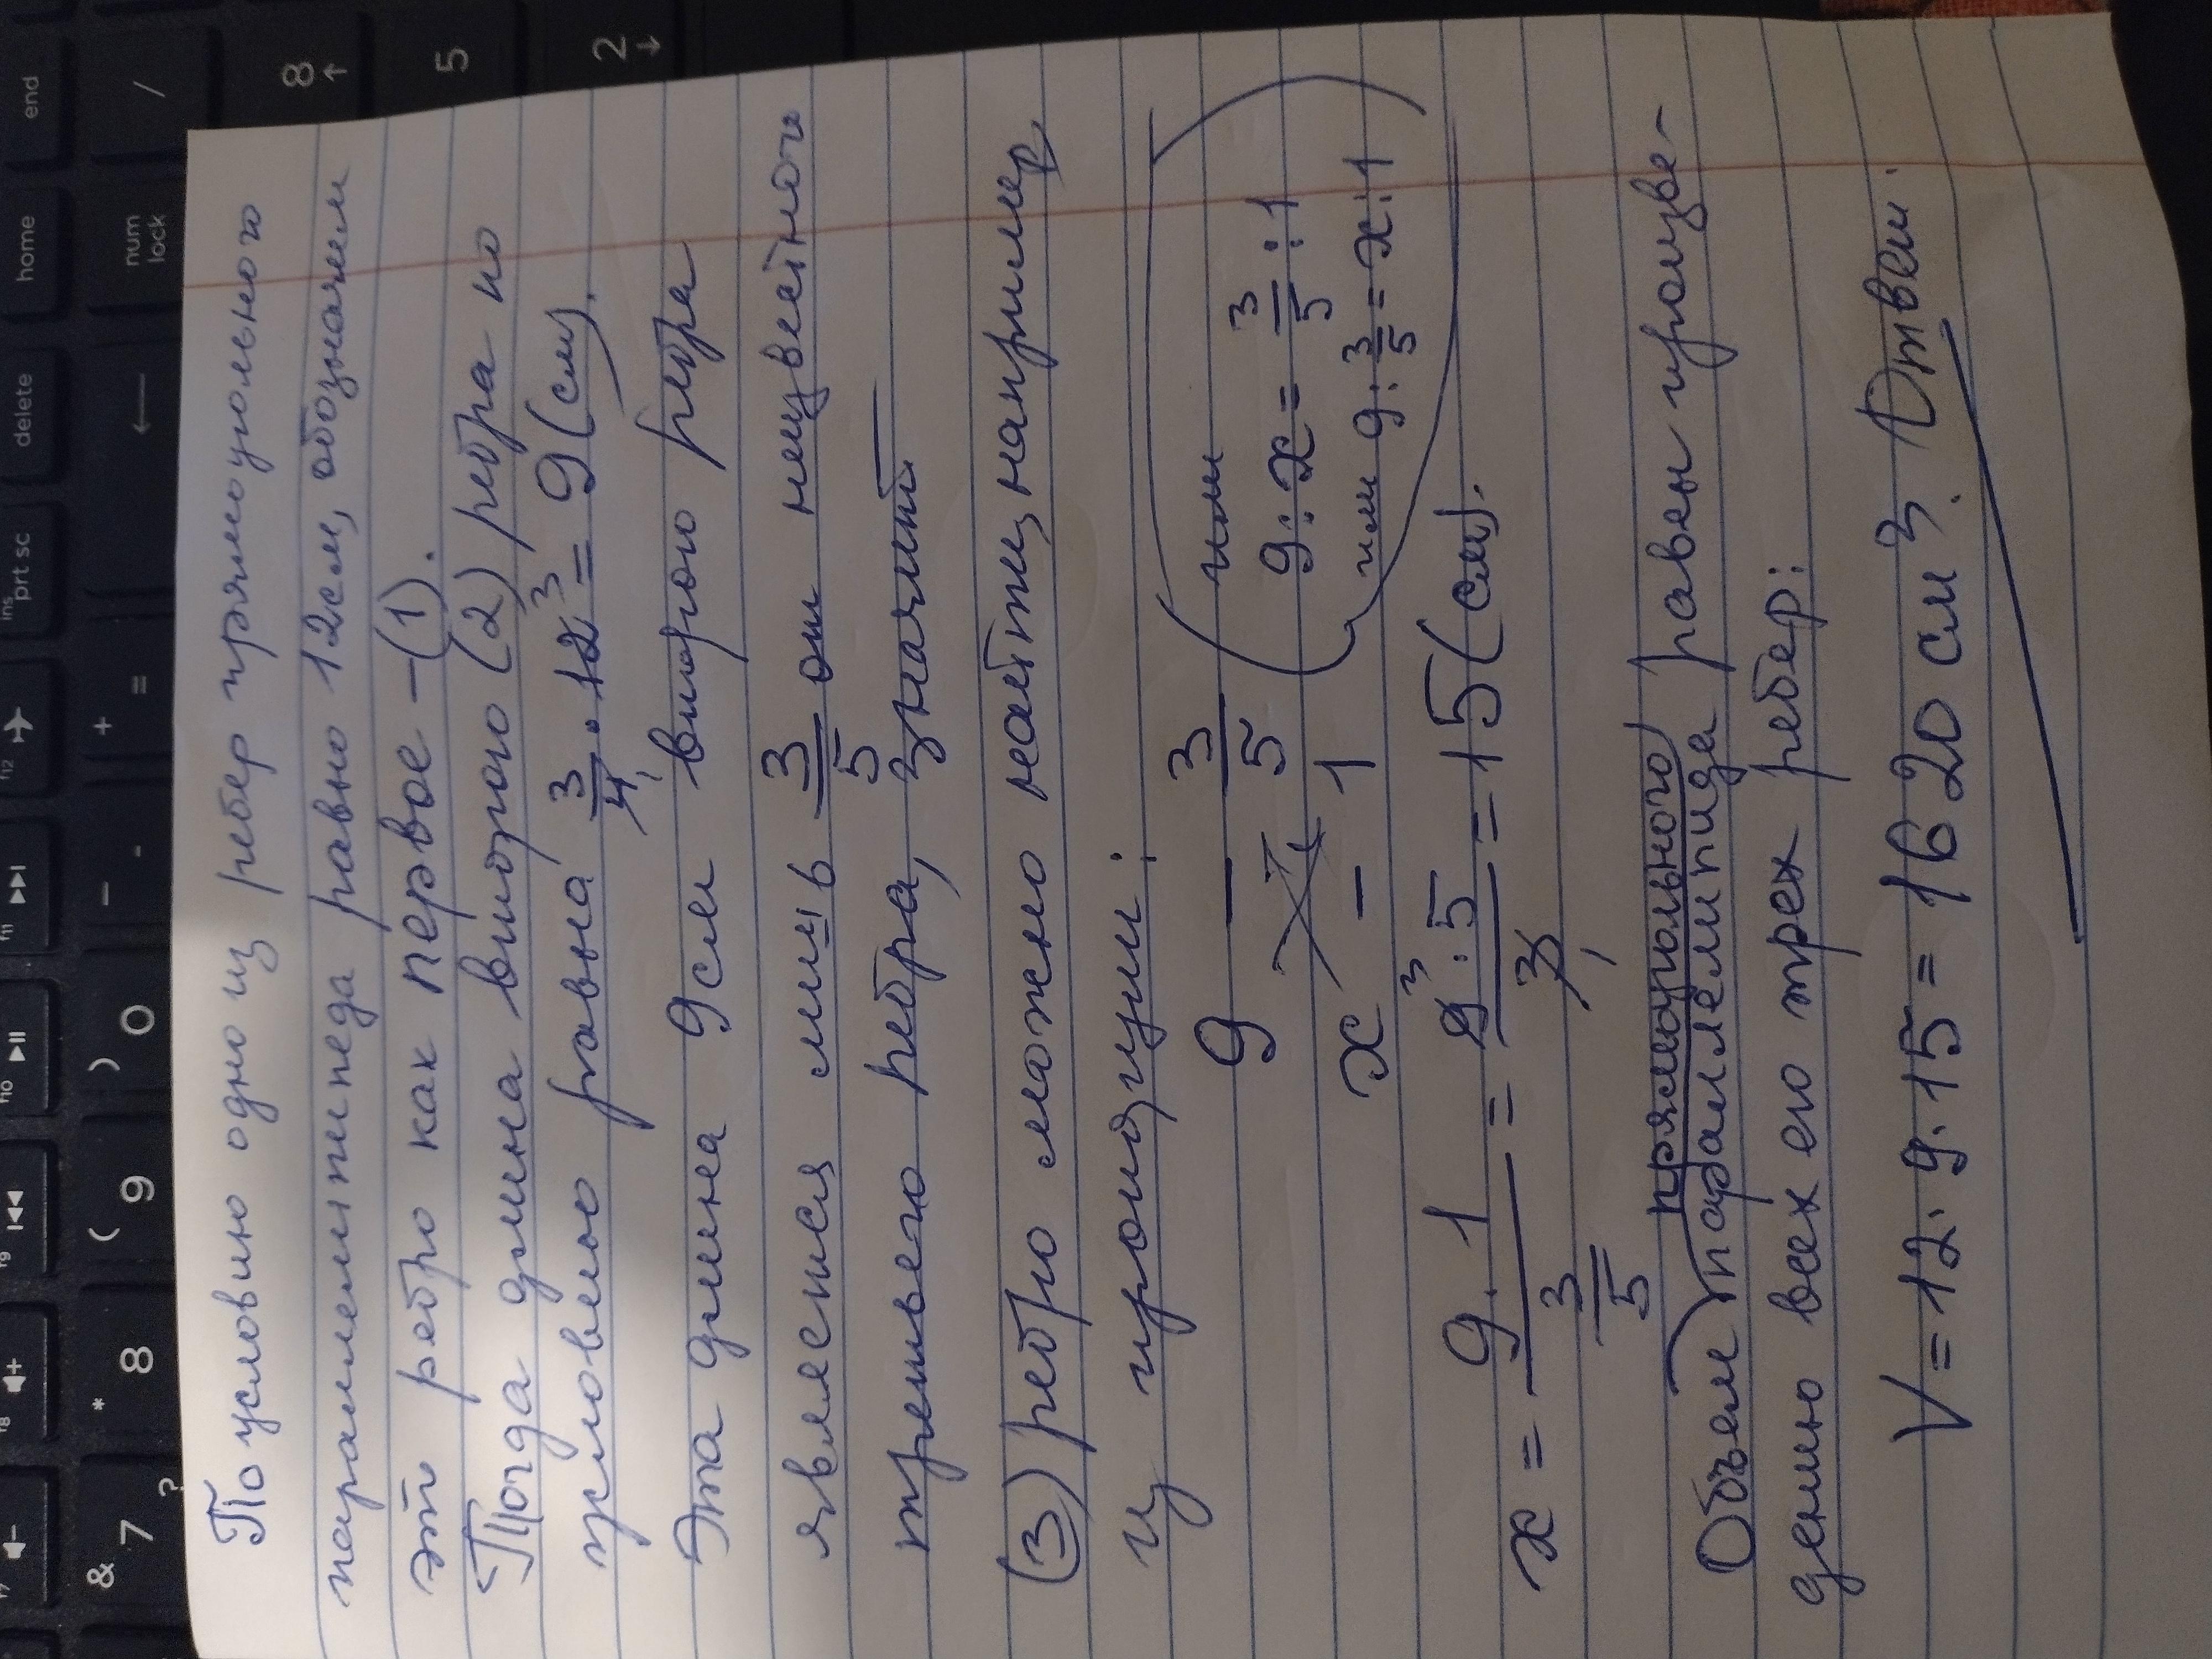 По условию одно из ребер прямоугольного
параллелипипеда равно 12см, обозначем
это ребро как первое – (1).
Тогда длина второго (2) ребра по
условию равна 3/4 · 12 3 = 9 (см).
Эта длина 9см второго ребра
является лишь 3/5 от неизвестного
третьего ребра, значит
(3) ребро можно найти, например
из пропорции:
9 – 3/5
x – 1
(или
9 : x = 3/5 : 1
или 9 : 3/5 = x : 1)
x = 9 · 1 / 3/5 = 9 3 · 5 / 3 1 = 15 (см).
прямоугольного
Объем параллелипида равен произве-
дению всех его трех ребер:
V = 12 · 9 · 15 = 1620 см³. Ответ.
end
home
delete
ins
prt sc
f12
f11
f10
f9
f8
/
num
lock
←
+
=
–
-
)
0
(
9
*
8
&
7
?
8
↑
5
2
↓